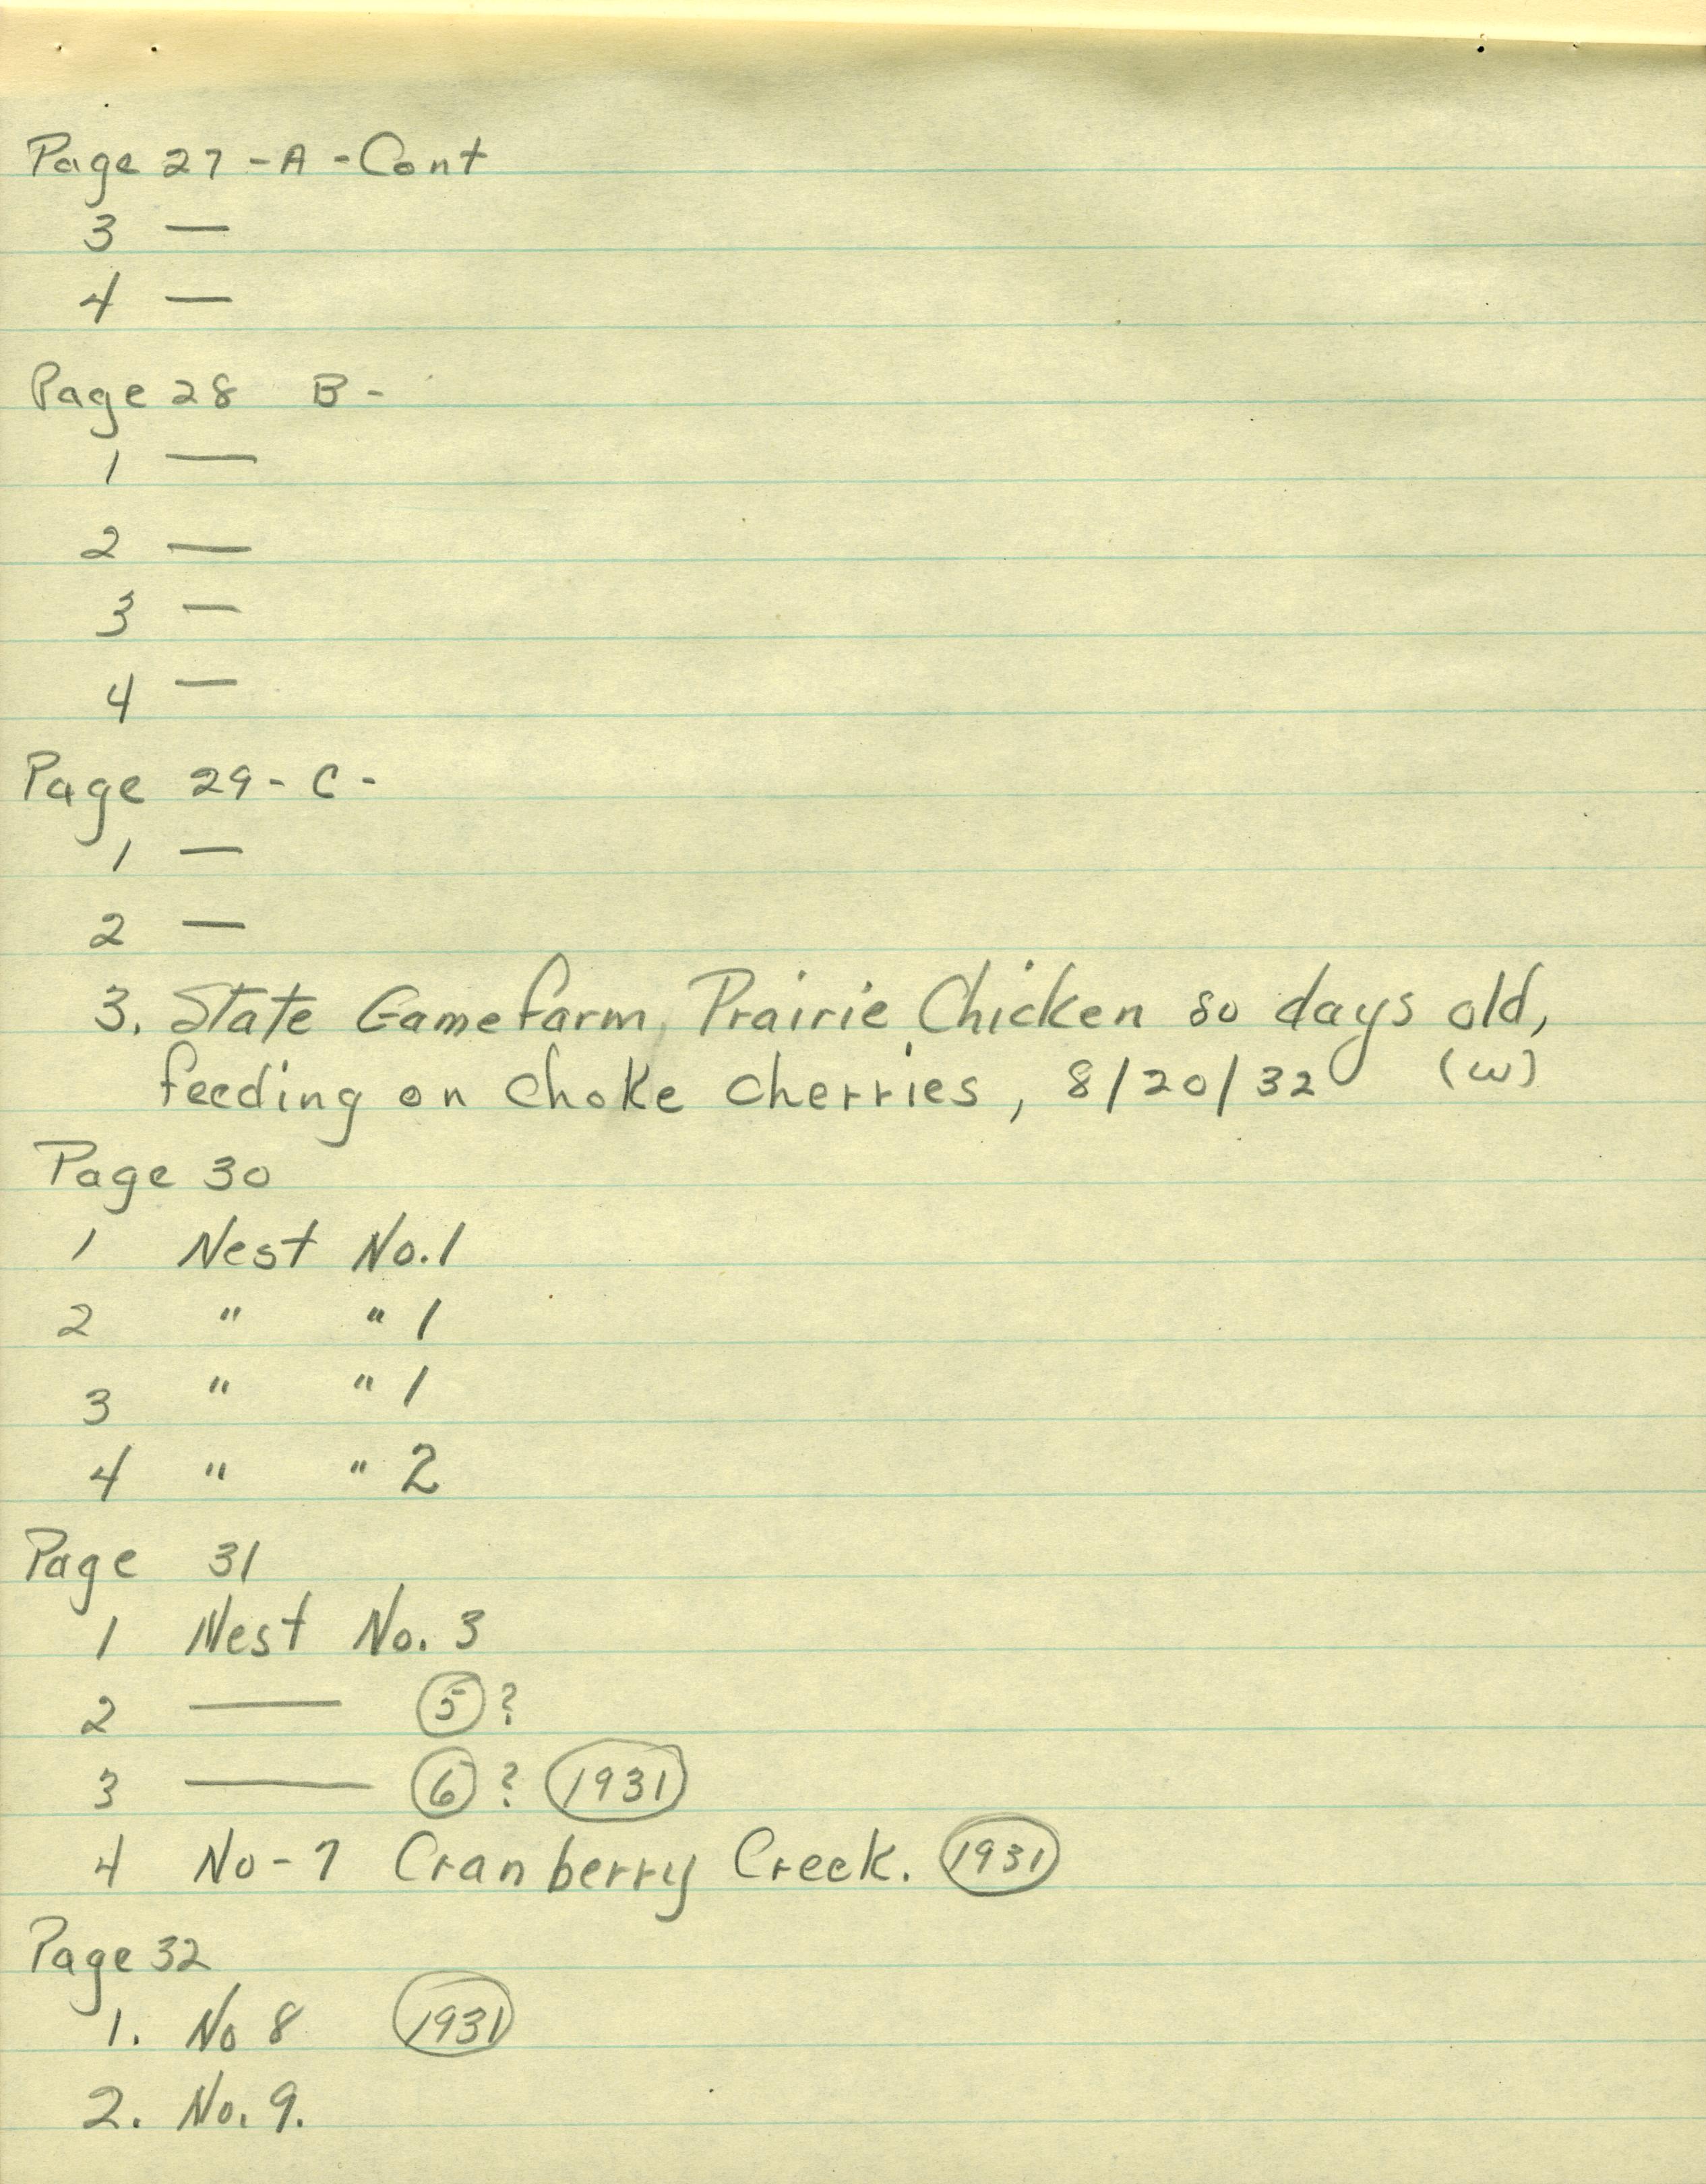 Page 27 - A - Cont
3 —
4 —
Page 28 B -
1 —
2 —
3 —
4 —
Page 29 - C -
1 —
2 —
3. State Game farm, Prairie Chicken 80 days old,
feeding on choke cherries, 8/20/32 (W)
Page 30
1 Nest No. 1
2 " " 1
3 " " 1
4 " " 2
Page 31
1 Nest No. 3
2 — 5 ?
3 — 6 ? 1931
4 No - 7 Cranberry Creek. 1931
Page 32
1. No 8 1931
2. No. 9.